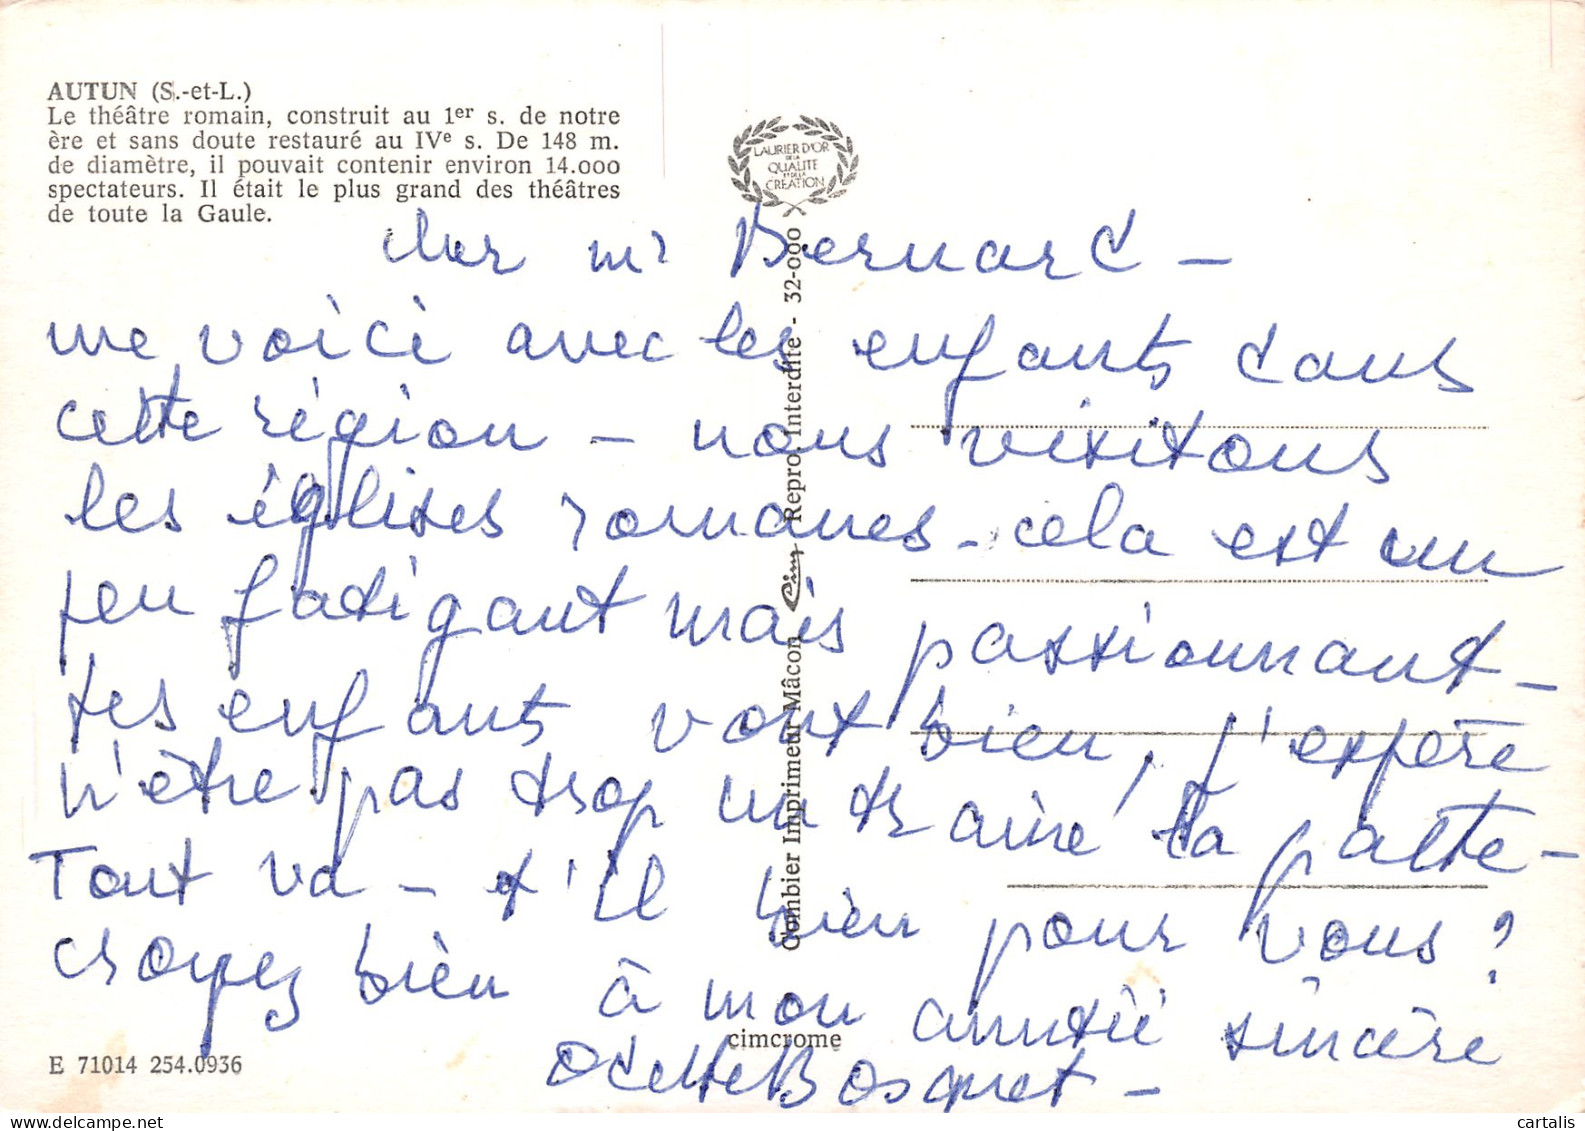 AUTUN (S.-et-L.)
Le théâtre romain, construit au 1er s. de notre
ère et sans doute restauré au IVe s. De 148 m.
de diamètre, il pouvait contenir environ 14.000
spectateurs. Il était le plus grand des théâtres
de toute la Gaule.
LAURIER D'OR
DE LA
QUALITE
ET DE LA
CREATION
Cher Mr Bernard -
me voici avec les enfants dans
cette région - nous visitons
les églises romanes - cela est un
peu fatigant mais passionnant -
tes enfants vont bien, j'espère
n'être pas trop un traîné la patte -
Tout va - t'il bien pour vous ?
croyez bien à mon amitié sincère
Odette Bosquet -
Combier Imprimeur Mâcon Cim Repro. Interdite - 32-000
cimcrome
E 71014 254.0936
cartalis